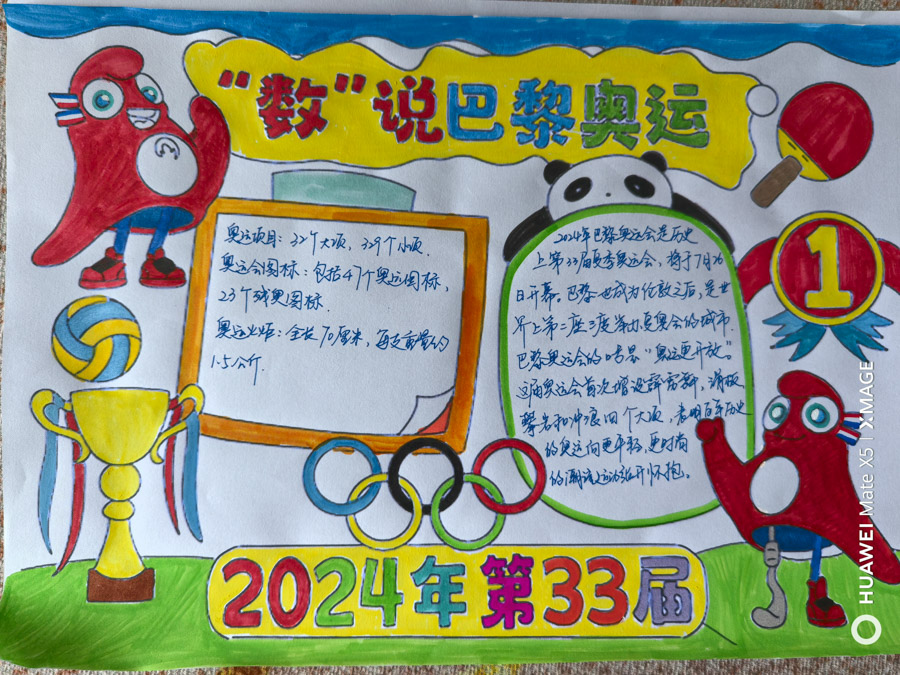 “数”说巴黎奥运
奥运项目：32个大项，329个小项
奥运会图标：包括47个奥运图标，
23个残奥图标.
奥运火炬：全长70厘米，每支重量约
1.5公斤.
2024年巴黎奥运会是历史
上第33届夏季奥运会，将于7月26
日开幕.巴黎也成为伦敦之后，是世
界上第二座三度举办夏奥会的城市.
巴黎奥运会的口号是“奥运更开放”。
这届奥运会首次增设霹雳舞，滑板
攀岩和冲浪四个大项，表明百年历史
的奥运向更年轻，更时尚
的潮流运动敞开怀抱。
1
2024年第33届
HUAWEI Mate X5 | XMAGE